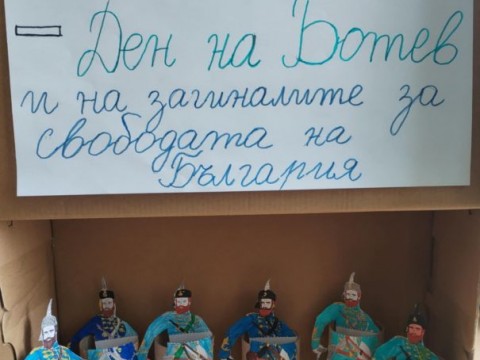 – Ден на Ботев
и на загиналите за
свободата на
България